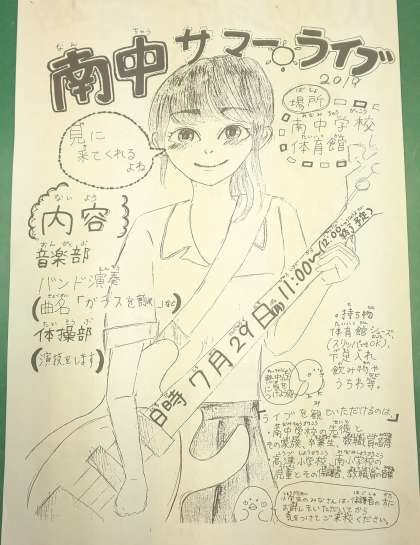 南中サマー・ライブ
2019
場所
南中学校
体育館
見に
来てくれる
よね
内容
音楽部
バンド演奏
(曲名「ガラスを割れ」など)
体操部
(演技をします)
日時 7月29日(月) 11:00〜(12:00終了予定)
・持ち物
体育館シューズ
(スリッパでもOK)
下足入れ
飲み物や
うちわ等。
ライブを観ていただけるのは、
・南中学校の先徒と
その家族、卒業生、教職員
南小学校の
児童とその保護者、教職員
小学生のみなさんは、保護者の方に
気をつけてご来校ください。